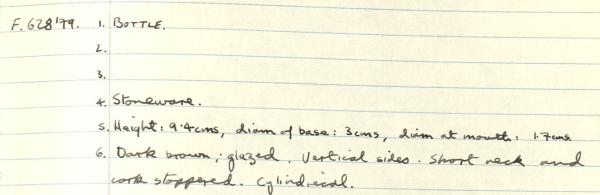 F.628'79. 1. BOTTLE.
2.
3.
4. Stoneware.
5. Height: 9.4cms, diam of base: 3cms, diam at mouth: 1.7cms
6. Dark brown, glazed. Vertical sides. Short neck and
cork stoppered. Cylindrical.